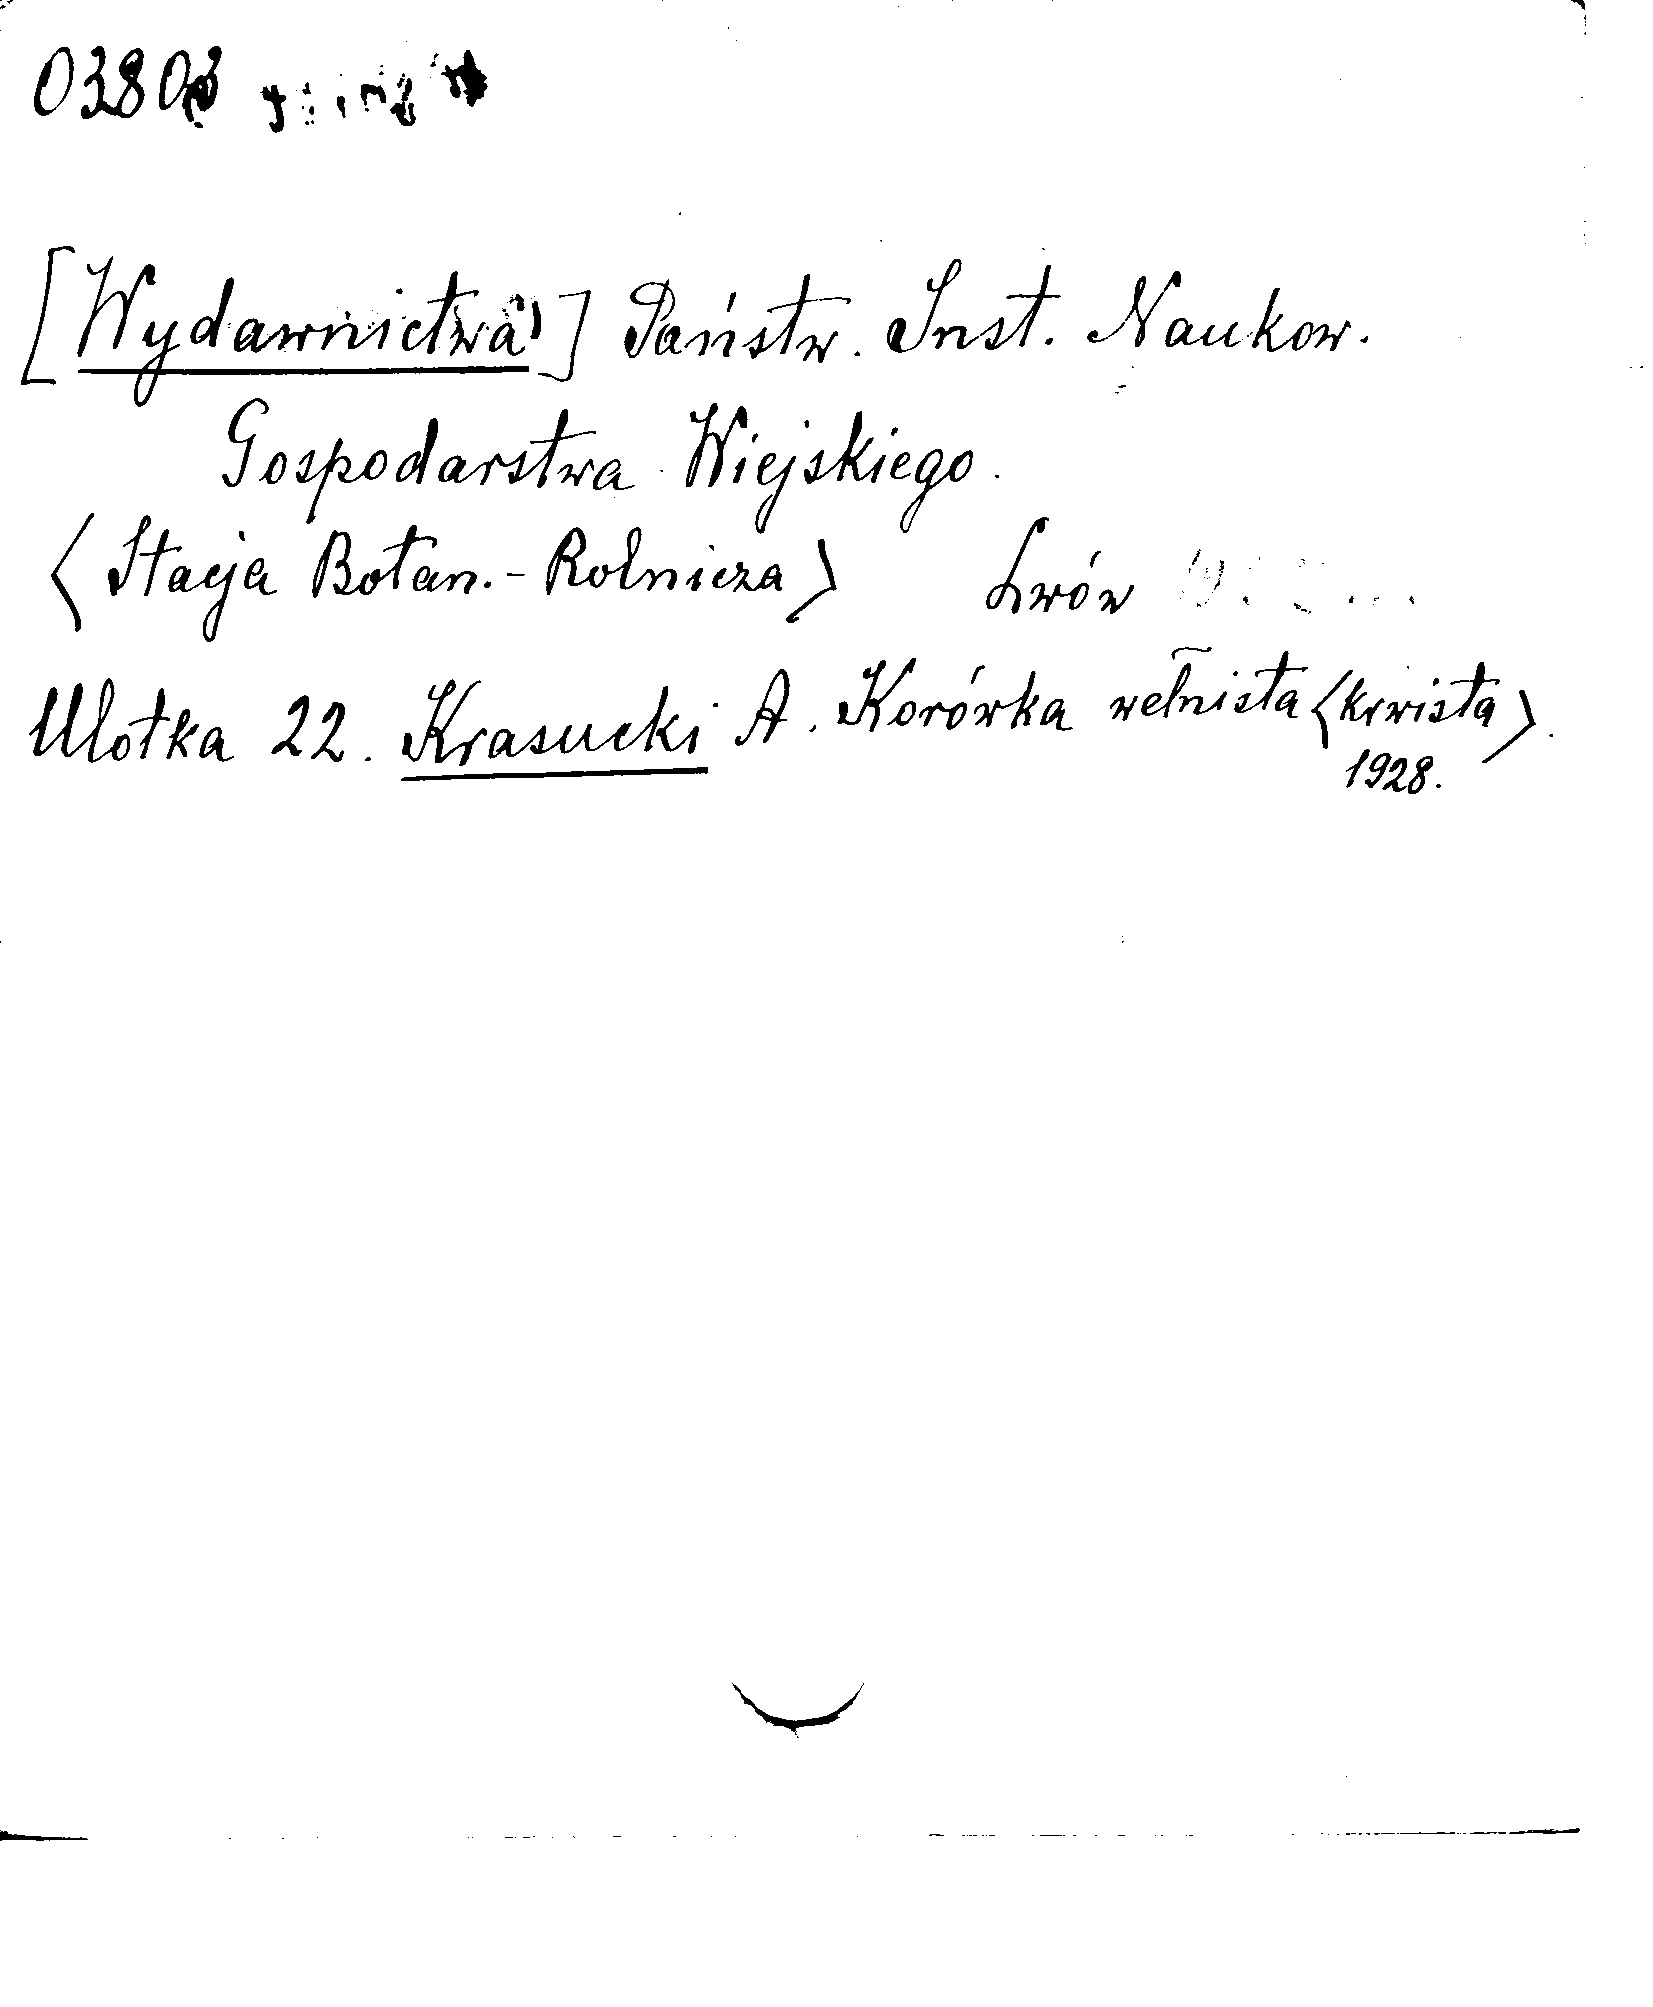 03803
[Wydawnictwa] Państw. Inst. Naukow.
Gospodarstwa Wiejskiego.
<Stacja Botan.-Rolnicza> Lwów
Ulotka 22. Krasucki A. Korówka wełnista <krwista>.
1928.